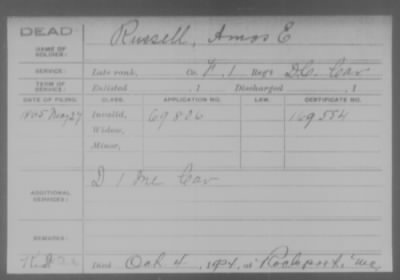 DEAD
NAME OF SOLDIER: Russell, Amos E
SERVICE: Late rank, Co. F, 1 Reg't D.C. Cav
TERM OF SERVICE: Enlisted , 1 Discharged , 1
DATE OF FILING. CLASS. APPLICATION NO. LAW. CERTIFICATE NO.
1865 May 27 Invalid, 69806 169554
Widow,
Minor,
ADDITIONAL SERVICES: D 1 Me Cav
REMARKS:
Died Oct 4, 1924, at Rockport, Me.